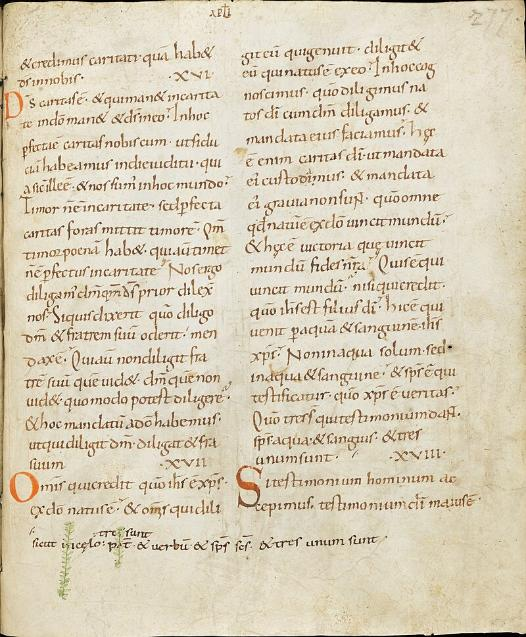 APLI
277
& credimus caritati quā hab&
ds innobis. XVI.
Ds caritas ē. & qui man& incarita
te indō man& & ds ineo. Inhoc
pfecta ē caritas nobiscum. ut fidu
ciā habeamus indie iudicii. qui
a sic ille ē. & nos sum' inhoc mundo.
Timor nē incaritate. sed pfecta
caritas foras mittit timorē. Qm̄
timor poenā hab&. qui aū tim&
nē pfectus incaritate. Nos ergo
diligam' dm̄ qm̄ ds prior dilex
nos. Siquis dixerit quō diligo
dm̄ & fratrem suū oderit. men
dax ē. Qui aū non diligit fra
trē suū quē uid&. dm̄ quē non
uid& quomodo potest diligere.
& hoc mandatū adō habemus.
ut qui diligit dm̄ diligat & fra
suum XVII
Omis qui credit quō ihs ē xps.
exdō natus ē. & oms qui dili
git eū qui genuit. diligit &
eū qui natus ē ex eo. Inhoc cog
noscimus. quō diligimus na
tos dī cum dm̄ diligamus. &
mandata eius faciamus. hęc
ē enim caritas dī. ut mandata
eī custodimus. & mandata
eī grauia non sunt. quō omne
qd natū ē ex dō uincit mundū.
& hęc ē uictoria que uincit
mundū fides nr̄a. Quis ē qui
uincit mundū. nisi qui credit.
quō ihs est filius dī. hic ē qui
uenit p aquā & sanguinē. ihs
xps. Non inaqua solum. sed
inaqua & sanguine. & sps ē qui
testificatur. quō xps ē ueritas.
Quō tres s' qui testimonium dant.
sps aqua & sanguis. & tres
unum sunt. XVIII.
Si testimonium hominum ac
cepimus. testimonium dī maius ē.
tres sunt
sicut incęlo. pat & uerbū & sps scs. & tres unum sunt